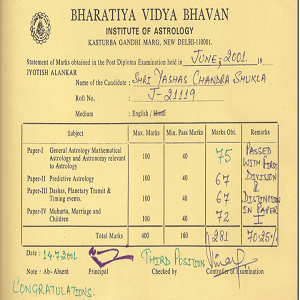 BHARATIYA VIDYA BHAVAN
INSTITUTE OF ASTROLOGY
KASTURBA GANDHI MARG, NEW DELHI-110001.
Statement of Marks obtained in the Post Diploma Examination held in JUNE, 2001 19
JYOTISH ALANKAR
Name of the Candidate : SHRI YASHAS CHANDRA SHUKLA
Roll No. J-21119
Medium English / Hindi
Subject Max. Marks Min. Pass Marks Marks Obt. Remarks
Paper-I General Astrology Mathematical Astrology and Astronomy relevant to Astrology 100 40 75 PASSED WITH FIRST
Paper-II Predictive Astrology 100 40 67 DIVISION &
Paper-III Dashas, Planetary Transit & Timing events. 100 40 67 DISTINCTION IN PAPER
Paper-IV Muhurta, Marriage and Children 100 40 72 I
Total Marks 400 160 281 70.25%
Date : 14.7.2001 THIRD POSITION
Note : Ab - Absent Principal Checked by Controller of Examination
CONGRATULATIONS.